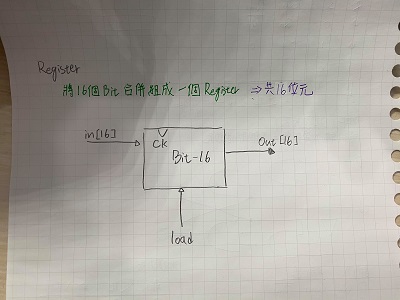 Register
將16個Bit合併組成一個Register ⇒共16位元
in[16]
CK
Bit-16
Out[16]
load